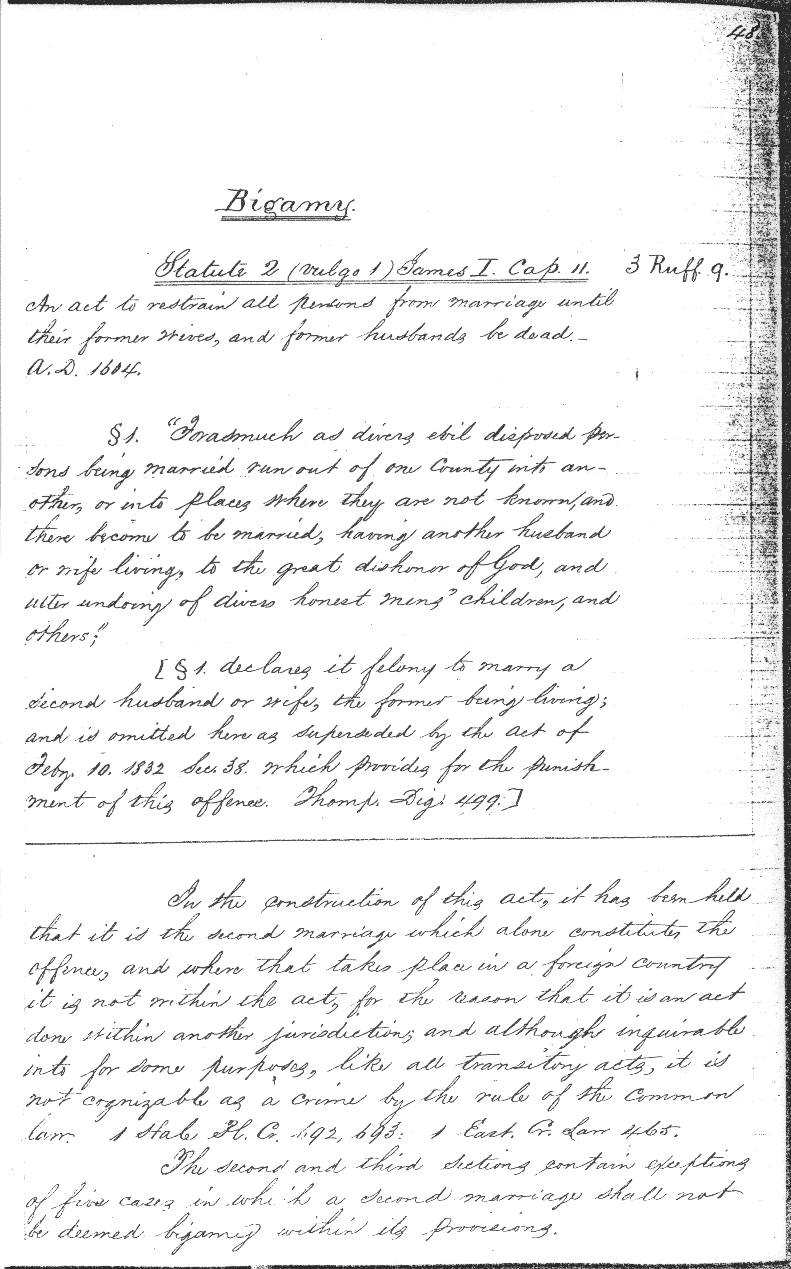 48.
Bigamy.
Statute 2 (vulgo 1) James I. Cap. 11. 3 Ruff. 9.
An act to restrain all persons from marriage until
their former wives, and former husbands be dead. –
A.D. 1604.
§1. "Forasmuch as divers evil disposed per-
sons being married run out of one County into an-
other, or into places where they are not known, and
there become to be married, having another husband
or wife living, to the great dishonor of God, and
utter undoing of divers honest mens" children, and
others;"
[§1. declares it felony to marry a
second husband or wife, the former being living;
and is omitted here as superseded by the act of
Feby. 10. 1832 Sec. 38. which provides for the punish-
ment of this offence. Thomp. Dig. 499.]
In the construction of this act, it has been held
that it is the second marriage which alone constitutes the
offence, and where that takes place in a foreign country
it is not within the act, for the reason that it is an act
done within another jurisdiction; and although inquirable
into for some purposes, like all transitory acts, it is
not cognizable as a crime by the rule of the Common
law. 1 Hale Pl. Cr. 692, 693: 1 East. Cr. Law 465.
The second and third sections contain exceptions
of five cases in which a second marriage shall not
be deemed bigamy within its provisions.